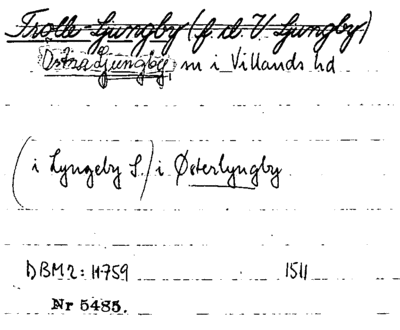 Trolle-Ljungby (f. d. V. Ljungby)
Östra Ljungby, sn i Villands hd
(i Lyngeby S.) i Østerlyngby
DBM 2: 11759 1511
Nr 5485.